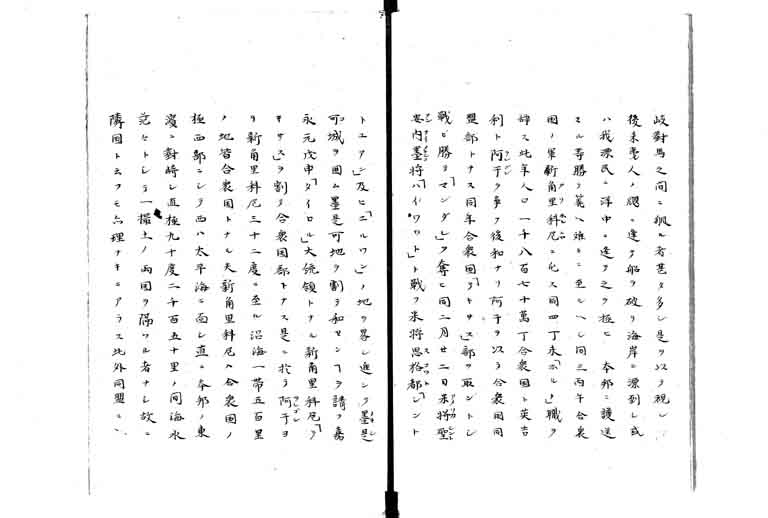 岐對馬之間ニ汎ル者甚タ多シ是ヲ以テ視レハ
後来蛮人ノ颶ニ逢テ船ヲ破リ海岸ニ漂到シ或
ハ我漂民ニ洋中ニ逢テ之ヲ極ヒ本邦ニ護送
スル等勝テ筭ヘ難キニ至ルヘシ同三丙午合衆
国ノ軍新角里科尼ニ化ス同四丁未ホルカ職ヲ
辞ス此年人口一千八百七十萬丁合衆国ト英吉
利ト阿千ヲ争フ後和ナリ阿千ヲ以テ合衆国同
盟部トナス同年合衆国テキサス部ヲ取ントシ
戦ヒ勝テマンダレヲ奪ヒ同二月廿二日米将聖
安内墨将ハイワウトト戦ヲ米将思格都レント
トエアン及ヒニルワンノ地ヲ畧シ進シク墨是
可城ヲ囲ム墨是可地ヲ割テ和センヿヲ請フ嘉
永元戊申タイロル大統領トナル新角里科尼テ
キサスヲ割テ合衆国部トナス是ニ於テ阿千ヨ
リ新角里科尼三十二度ニ至ル沿海一帯五百里
ノ地皆合衆国トナル夫新角里科尼ハ合衆国ノ
極西部ニシテ西ハ太平海ニ面シ直ニ本邦ノ東
濱ニ對峙シ直極九十度二千百五十里ノ間海水
茫々トシテ一撮土ノ両国ヲ隔ツル者ナシ故ニ
隣国ト云フモ亦理ナキニアラス此外同盟ニハ